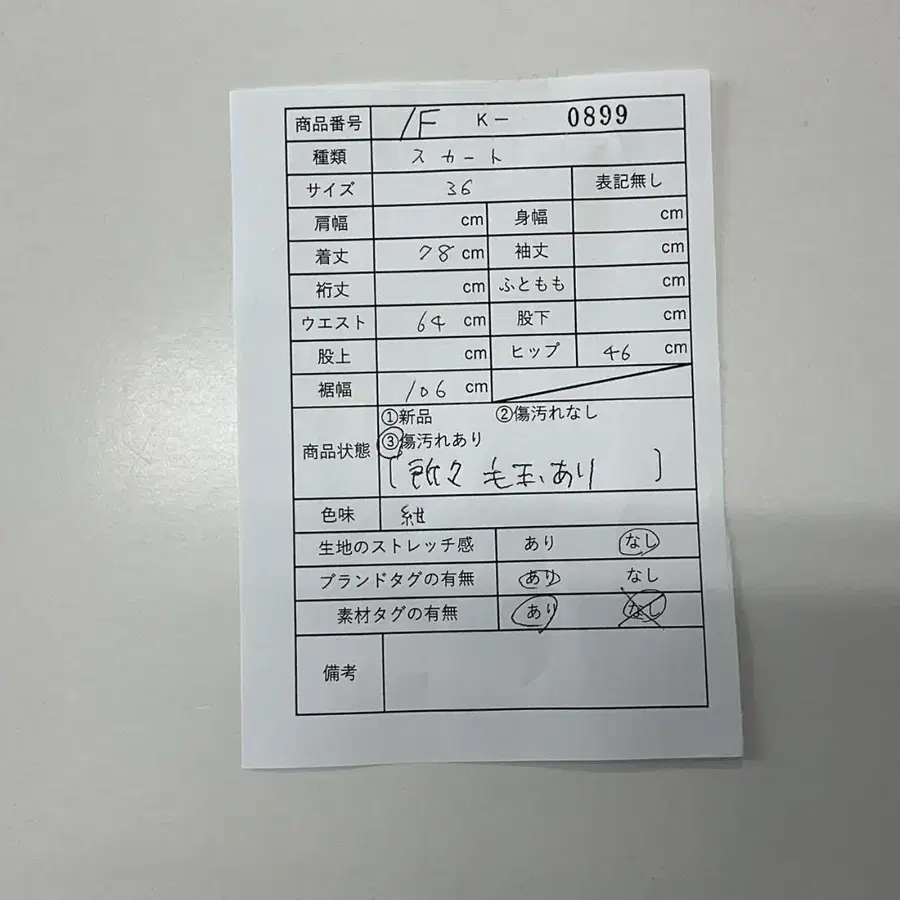 商品番号 1F K- 0899
種類 スカート
サイズ 36 表記無し
肩幅 cm 身幅 cm
着丈 78 cm 袖丈 cm
裄丈 cm ふともも cm
ウエスト 64 cm 股下 cm
股上 cm ヒップ 46 cm
裾幅 106 cm
①新品 ②傷汚れなし
商品状態 ③傷汚れあり
[所々 毛玉あり ]
色味 紺
生地のストレッチ感 あり なし
ブランドタグの有無 あり なし
素材タグの有無 あり なし
備考